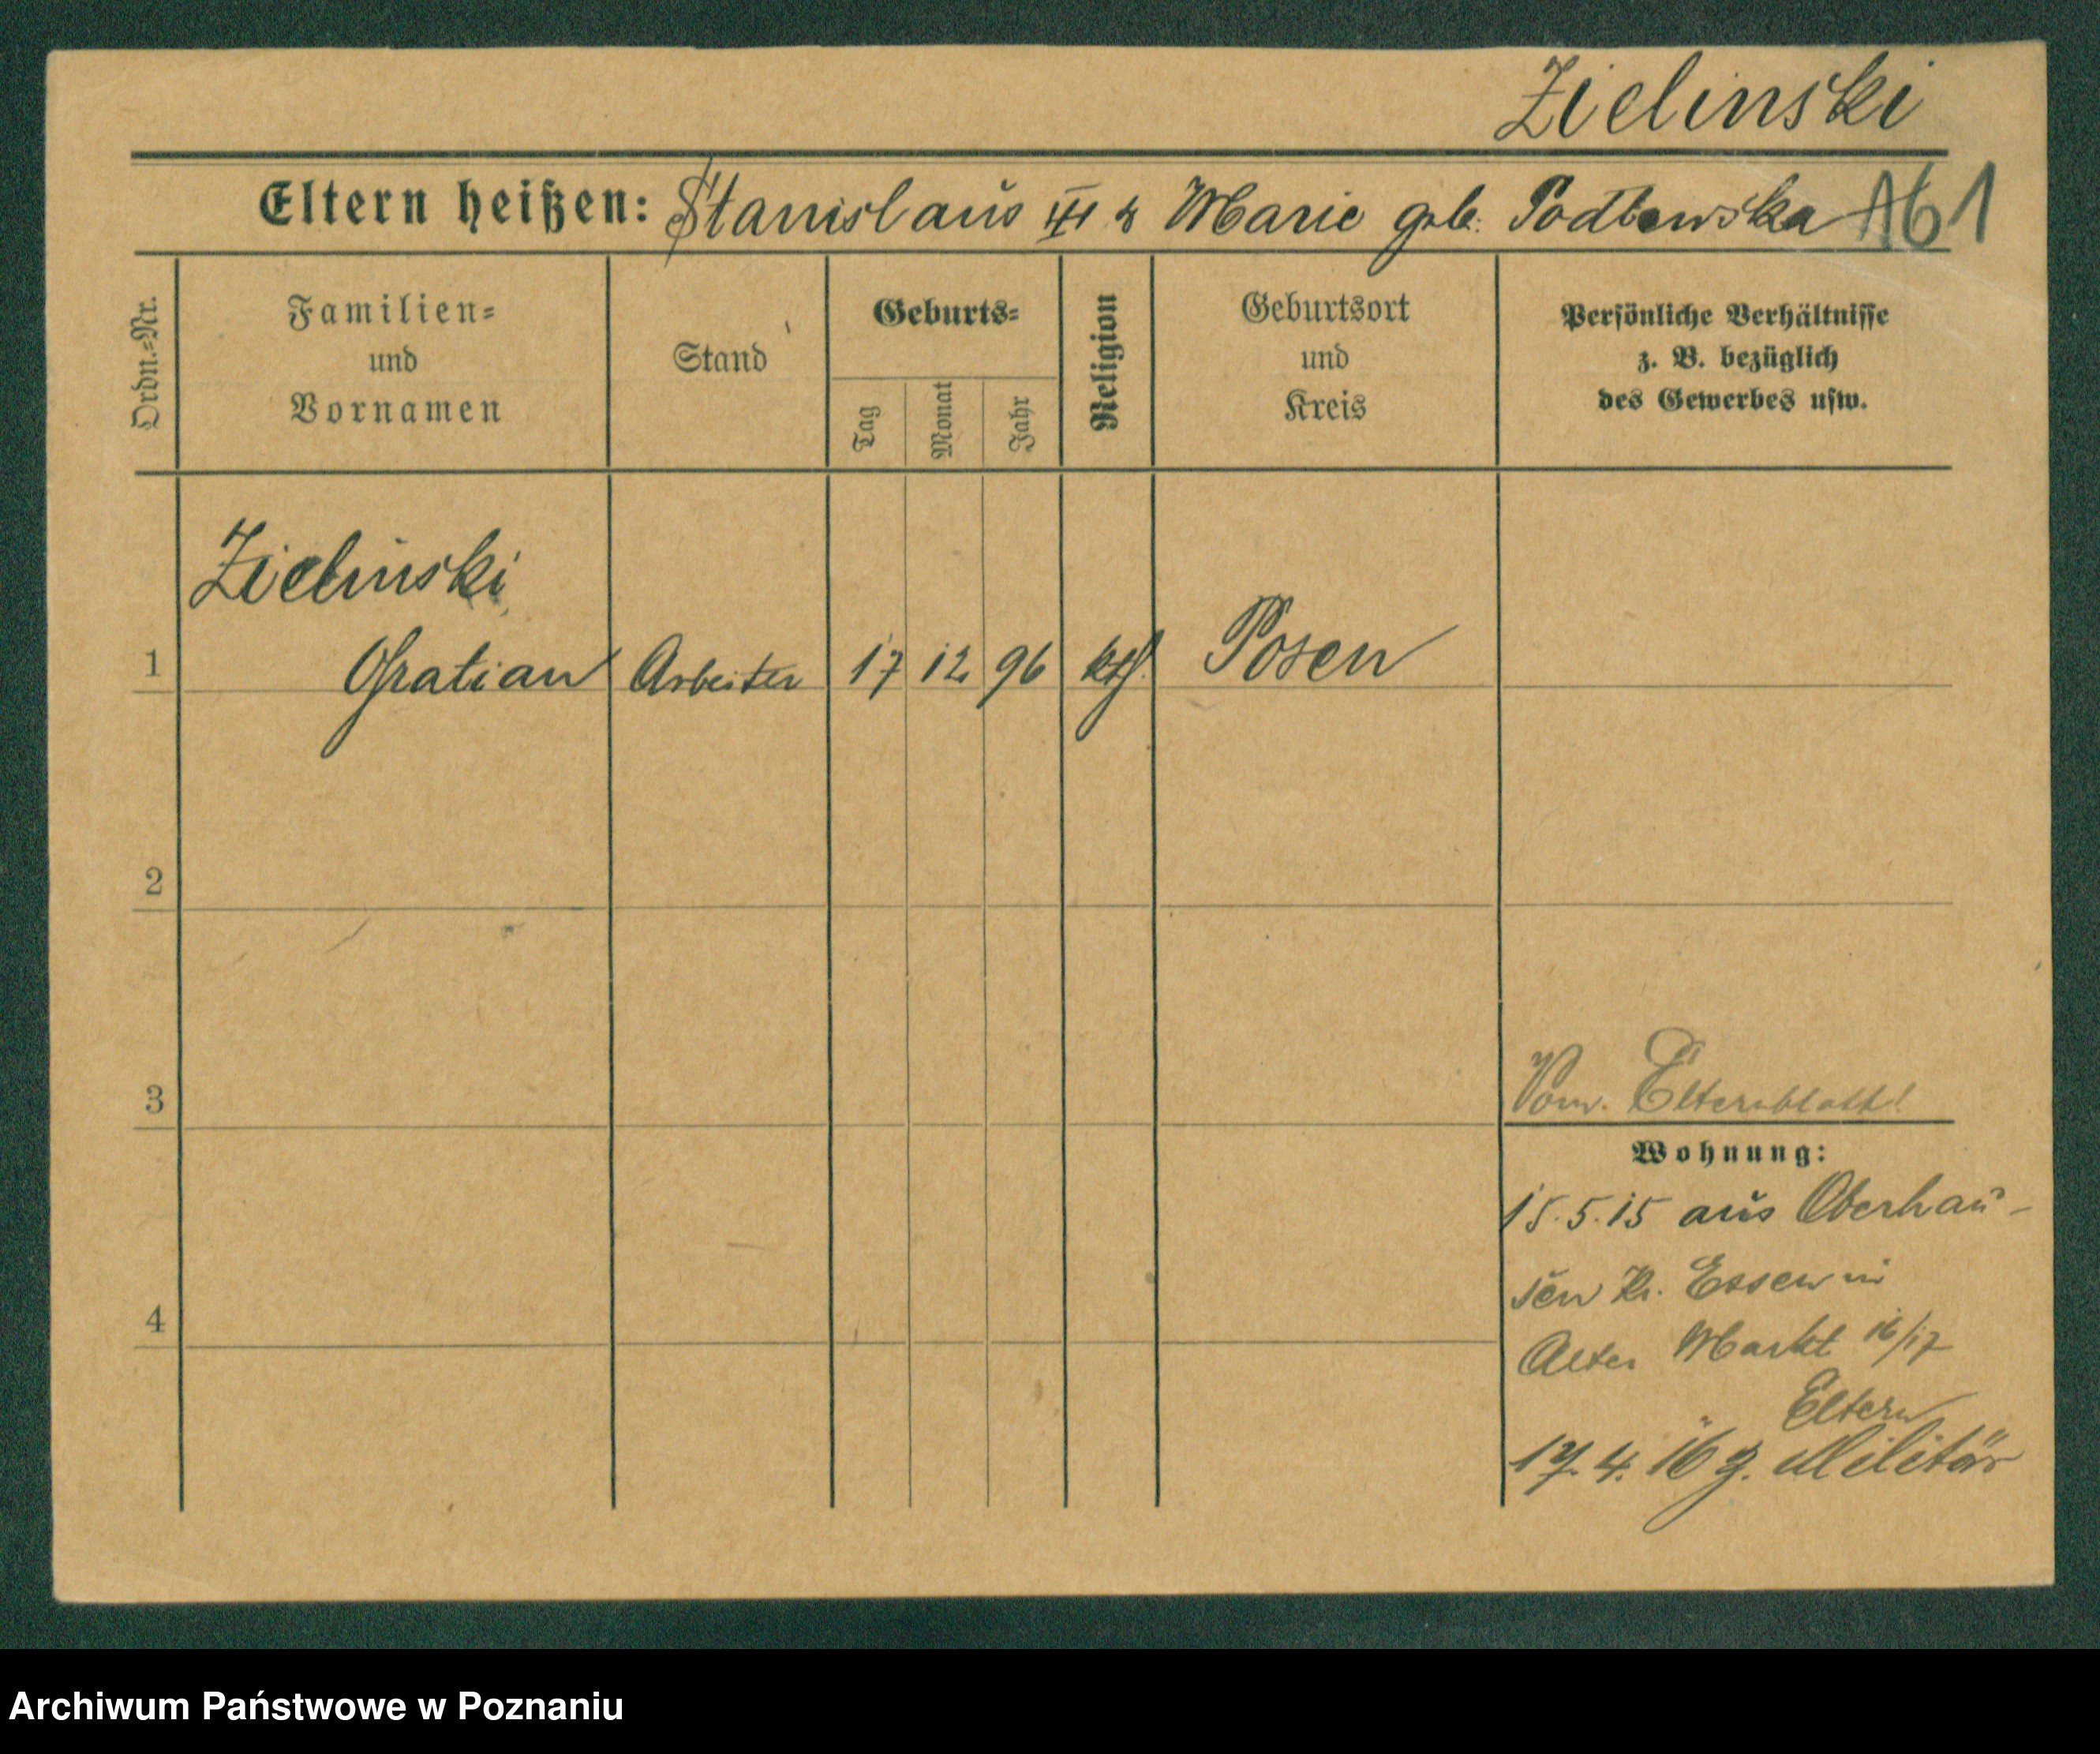 Zielinski
Eltern heißen: Stanislaus III & Marie geb. Podlewska 161
Ordn.=Nr.
Familien=
und
Vornamen
Stand
Geburts=
Tag
Monat
Jahr
Religion
Geburtsort
und
Kreis
Persönliche Verhältnisse
z. B. bezüglich
des Gewerbes usw.
Zielinski
1 Gratian Arbeiter 17 12 96 kth. Posen
2
3
Elternblatt!
Wohnung:
15.5.15 aus Oberhau-
sen Kr. Essen
4
Alter Markt 16/17
Eltern
17.4.16 z. Militär
Archiwum Państwowe w Poznaniu